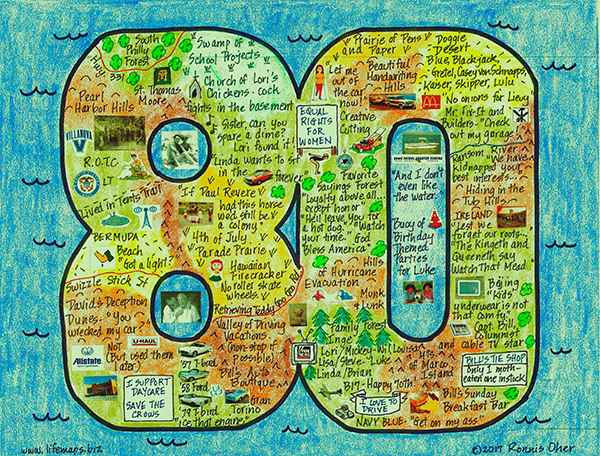 South
Philly
Forest
Hwy.
331
St. Thomas
Moore
Pearl
Harbor Hills
VILLANOVA
R.O.T.C.
LT.
Lived in Tents Trail
BERMUDA
Beach
Got a light?
Swizzle Stick St.
David's Deception
Dunes. "You
wrecked my car."
Not
(But used them
later)
U-HAUL
Allstate
I SUPPORT
DAYCARE
SAVE THE
CROWS
Swamp of
School Projects
Church of Lori's
Chickens - cock
fights in the basement
Sister, can you
spare a dime?
Lori found it!
Linda wants to sit
in the
forever
If Paul Revere
had this horse
we'd still be
a colony
4th of July
Parade Prairie
Hawaiian
Firecracker
No roller skate
wheels
Retrieving Teddy
Rd.
Valley of Driving
Vacations
(non-stop if
possible)
Bill's Auto
Boutique
'57 T-bird
'58 Ford
'79 T-bird
Gran
Torino
"ice thai engine"
EQUAL
RIGHTS
FOR
WOMEN
"Let me
out of
the car
now!"
Prairie of Pens
and Paper
Beautiful
Handwriting
Hills
Creative
Cutting
Favorite
Sayings Forest
"Loyalty above all...
except honor"
"He'll leave you for
a hot dog." "Watch
your time." "God
Bless America"
Hills
of Hurricane
Evacuation
Munk
& Lunk
Family Forest
Inge
Lori/Mickey-Will
Lisa/Steve-
Linda/Brian
Louisa
and
Mts.
of Marco
Island
B17-Happy 70th!
I LOVE TO
DRIVE
NAVY BLUE- "Get on my ass"
Doggie
Desert
Blue, Blackjack,
Gretel, Casey von Schnapps,
Kaiser, Skipper, Lulu
No onions for Lievy
Mr. Fix-It and
Builders- "Check
out my garage"
"And I don't
even like
the water."
Buoy of
Birthday
Themed
Parties
for Luke
Ransom River
"We have
kidnapped your
best interests..."
Hiding in the
Tub Hills
IRELAND
"Lest we
forget our roots..."
"The Kingeth and
Queeneth say
Watch That Mead
Beijing
"Kids'
underwear is not
that comfy."
Capt. Bill
Columnist
and
Cable TV star
BILL'S TIE SHOP
Only 1 moth-
eaten one in stock
Bill's Sunday
Breakfast Bar
www.lifemaps.biz
©2017 Ronnis Oher